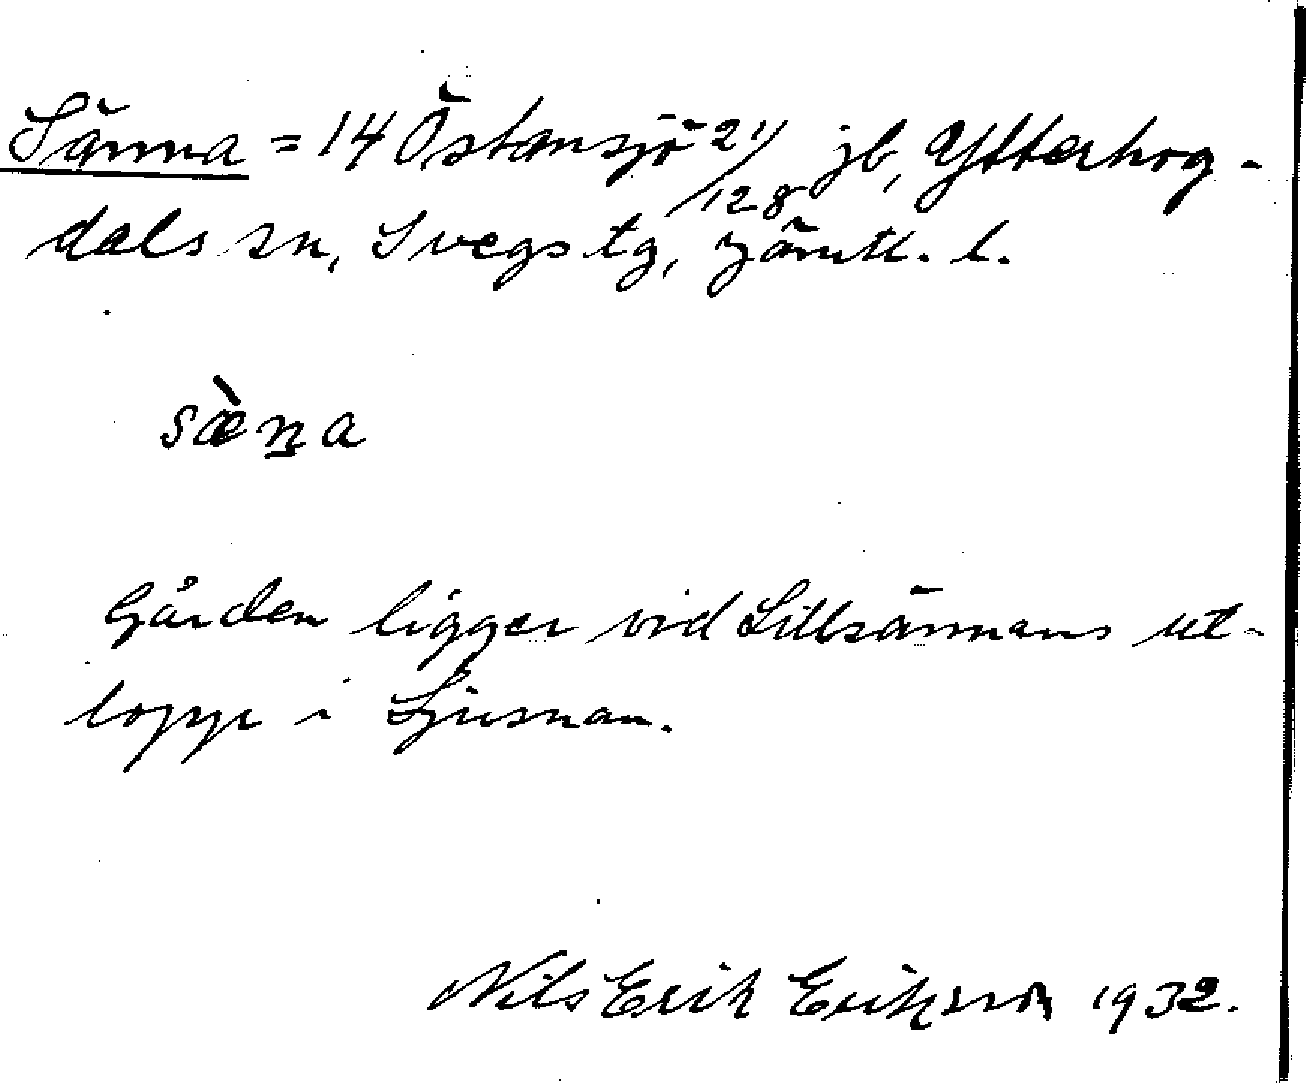 Särna = 14 Östansjö 21/128 jb, Ytterhog-
dals sn, Svegs tg, Jämtl. l.
sæ̀n̠a
Gården ligger vid Lillsärnans ut-
lopp i Ljusnan.
Nils Erik Eriksson 1932.